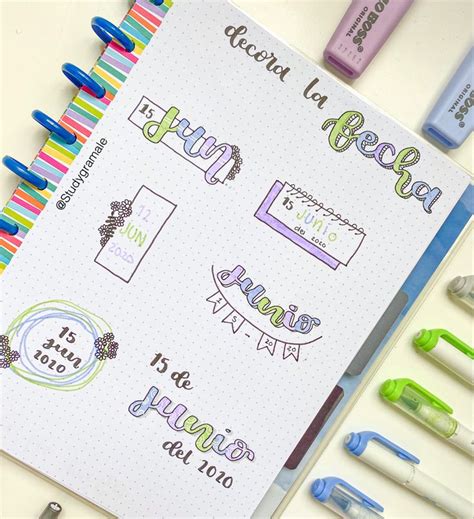 decora la
fecha
@Studygramale
15
JUN
12
JUN
2020
15 JUNIO
del 2020
junio
15
jun
2020
15 de
junio
del 2020
BOSS
ORIGINAL
BOSS
ORIGINAL